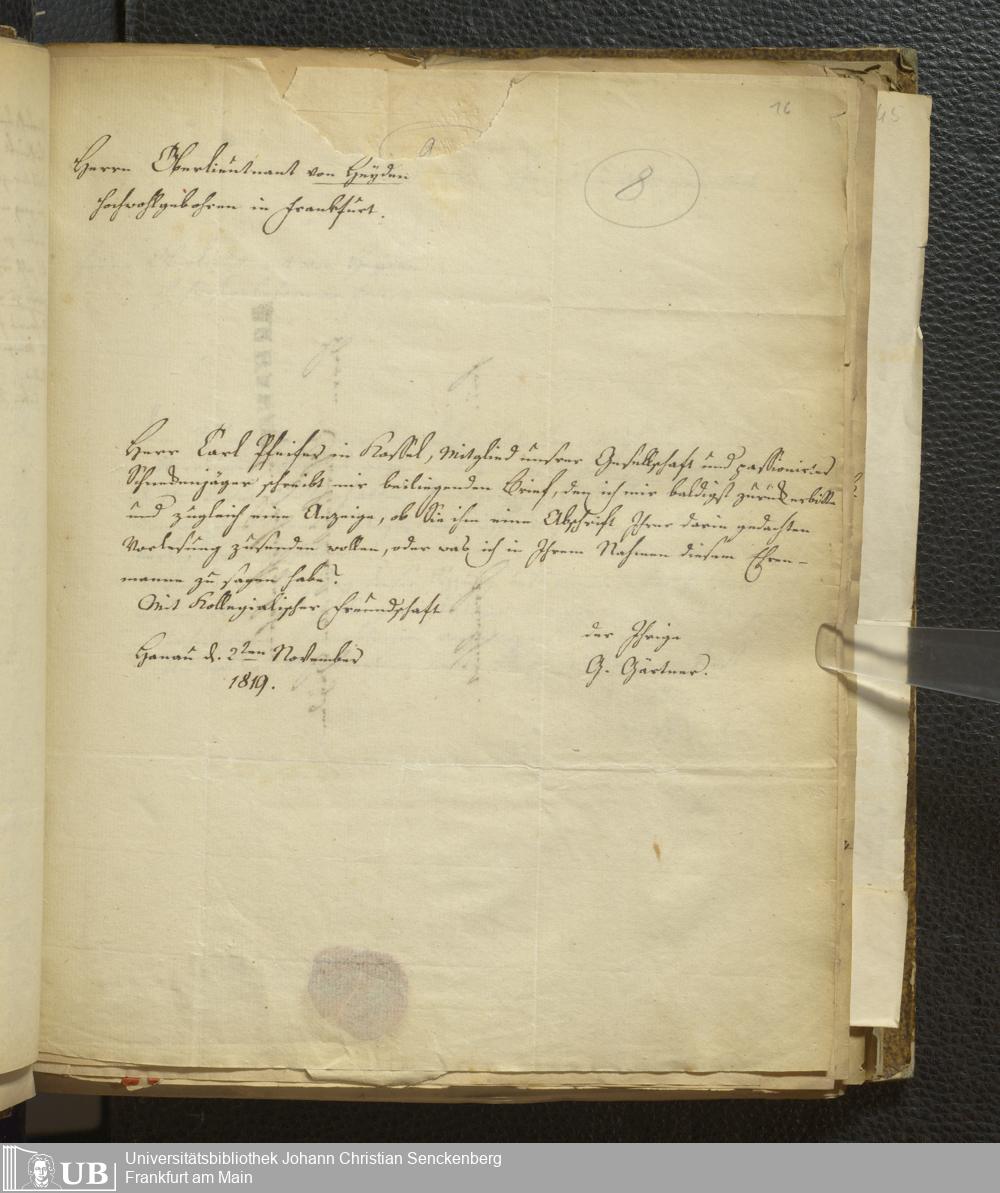 16
45
8
Herrn Oberlieutnant von Heyden
hochwohlgebohren in Frankfurt.
Herr Carl Pfeifer in Kassel, Mitglied unsrer Gesellschaft und passionirter
Schneckenjäger schreibt mir beiliegenden Brief, den ich mir baldigst zurück erbitte
und zugleich eine Anzeige, ob Sie ihm eine Abschrift Ihrer darin gedachten
Vorlesung zusenden wollen, oder was ich in Ihrem Nahmen diesem Ehren-
manne zu sagen habe?
Mit Kollegialischer Freundschaft
der Ihrige
Hanau d. 2ten November
G. Gärtner.
1819.
UB
Universitätsbibliothek Johann Christian Senckenberg
Frankfurt am Main